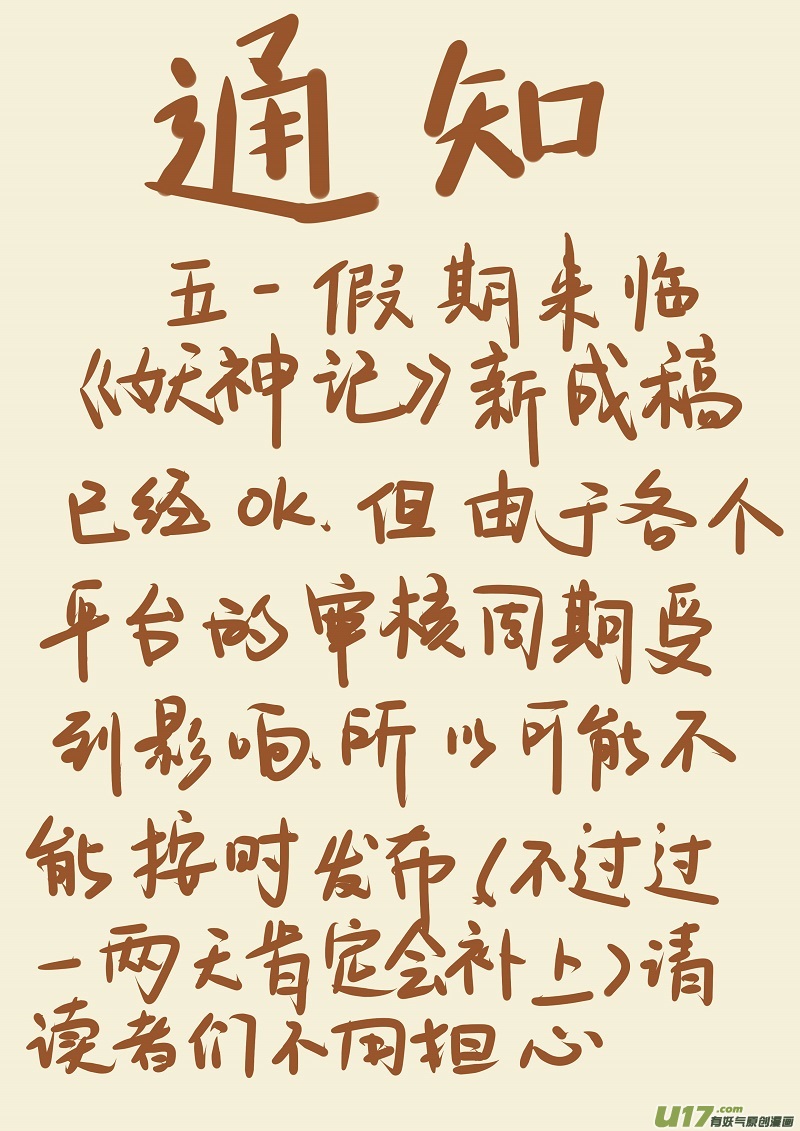 通知
五一假期来临
《妖神记》新成稿
已经OK、但由于各个
平台的审核周期受
到影响、所以可能不
能按时发布(不过过
一两天肯定会补上)请
读者们不用担心
U17.com
有妖气原创漫画